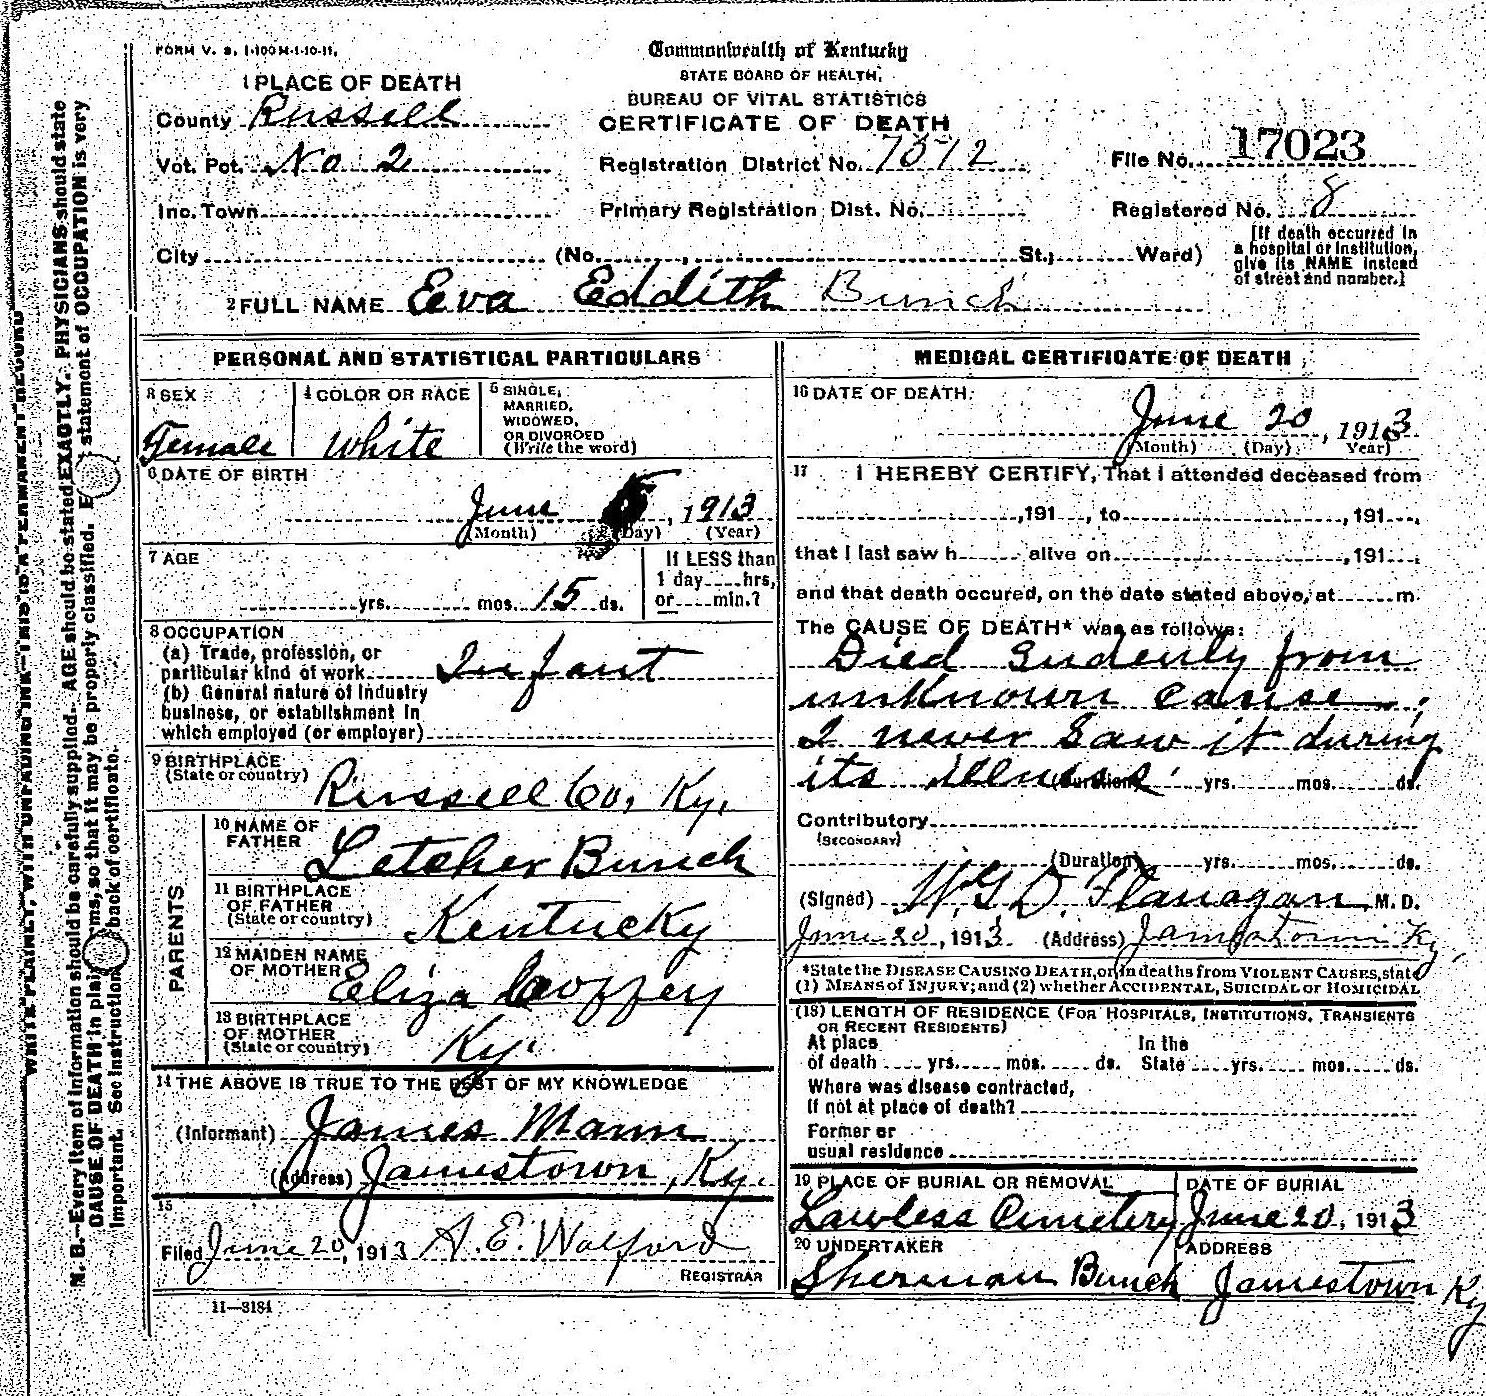 FORM V. S. 1-100M-1-10-11.
Commonwealth of Kentucky
STATE BOARD OF HEALTH,
BUREAU OF VITAL STATISTICS
CERTIFICATE OF DEATH
1 PLACE OF DEATH
County Russell
Vot. Pct. No 2
Registration District No. 7512
File No. 17023
Inc. Town
Primary Registration Dist. No.
Registered No. 8
City (No. , St.; Ward)
[If death occurred in a hospital or institution, give its NAME instead of street and number.]
2 FULL NAME Eva Eddith Bunch
PERSONAL AND STATISTICAL PARTICULARS
3 SEX Female
4 COLOR OR RACE White
5 SINGLE, MARRIED, WIDOWED, OR DIVORCED (Write the word)
6 DATE OF BIRTH
June , 1913
(Month) (Day) (Year)
7 AGE
yrs. mos. 15 ds.
If LESS than 1 day hrs, or min.?
8 OCCUPATION
(a) Trade, profession, or
particular kind of work Infant
(b) General nature of Industry
business, or establishment in
which employed (or employer)
9 BIRTHPLACE
(State or country) Russell Co, Ky,
PARENTS
10 NAME OF FATHER Letcher Bunch
11 BIRTHPLACE OF FATHER (State or country) Kentucky
12 MAIDEN NAME OF MOTHER Eliza Coffey
13 BIRTHPLACE OF MOTHER (State or country) Ky.
14 THE ABOVE IS TRUE TO THE BEST OF MY KNOWLEDGE
(Informant) James Mann
(Address) Jamestown, Ky.
15
Filed June 20, 1913 A. E. Wolford
REGISTRAR
11-3184
MEDICAL CERTIFICATE OF DEATH
16 DATE OF DEATH
June 20, 1913
(Month) (Day) (Year)
17 I HEREBY CERTIFY, That I attended deceased from
,191 , to ,191 ,
that I last saw h alive on ,191 ,
and that death occured, on the date stated above, at m.
The CAUSE OF DEATH* was as follows:
Died Sudenly from
unknown cause,
I never Saw it during
its illness. (Duration) yrs. mos. ds.
Contributory
(SECONDARY)
(Duration) yrs. mos. ds.
(Signed) W.G.D. Flanagan, M. D.
June 20, 1913 (Address) Jamestown Ky,
*State the DISEASE CAUSING DEATH, or, in deaths from VIOLENT CAUSES, state
(1) MEANS of INJURY; and (2) whether ACCIDENTAL, SUICIDAL OR HOMICIDAL
(18) LENGTH OF RESIDENCE (FOR HOSPITALS, INSTITUTIONS, TRANSIENTS
OR RECENT RESIDENTS)
At place In the
of death yrs. mos. ds. State yrs. mos. ds.
Where was disease contracted,
If not at place of death?
Former or
usual residence
19 PLACE OF BURIAL OR REMOVAL Lawless Cemetery
DATE OF BURIAL June 20, 1913
20 UNDERTAKER Sherman Bunch
ADDRESS Jamestown Ky
WRITE PLAINLY, WITH UNFADING INK—THIS IS A PERMANENT RECORD
N. B.—Every item of information should be carefully supplied. AGE should be stated EXACTLY. PHYSICIANS should state
CAUSE OF DEATH in plain terms, so that it may be properly classified. statement of OCCUPATION is very
important. See instructions back of certificate.